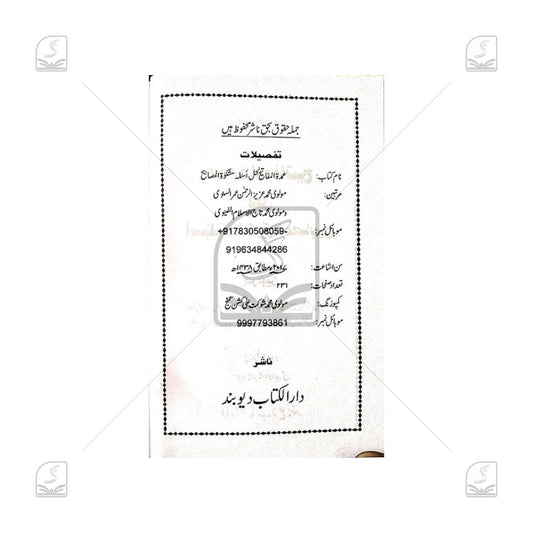 جملہ حقوق بحق ناشر محفوظ ہیں
تفصیلات
نام کتاب: عمدۃ المفاتیح لحل اسئلہ مشکوٰۃ المصابیح
مرتبین: مولوی محمد عزیز الرحمٰن عمر
ومولوی محمد تاج الاسلام
موبائل نمبر: +917830508059-
919634844286
سن اشاعت: ۲۰۱۷ء مطابق ۱۴۳۸ھ
تعداد صفحات: ۲۳۱
کمپوزنگ: مولوی محمد شوکت علی کشن گنج
موبائل نمبر: 9997793861
ناشر
دار الکتاب دیوبند